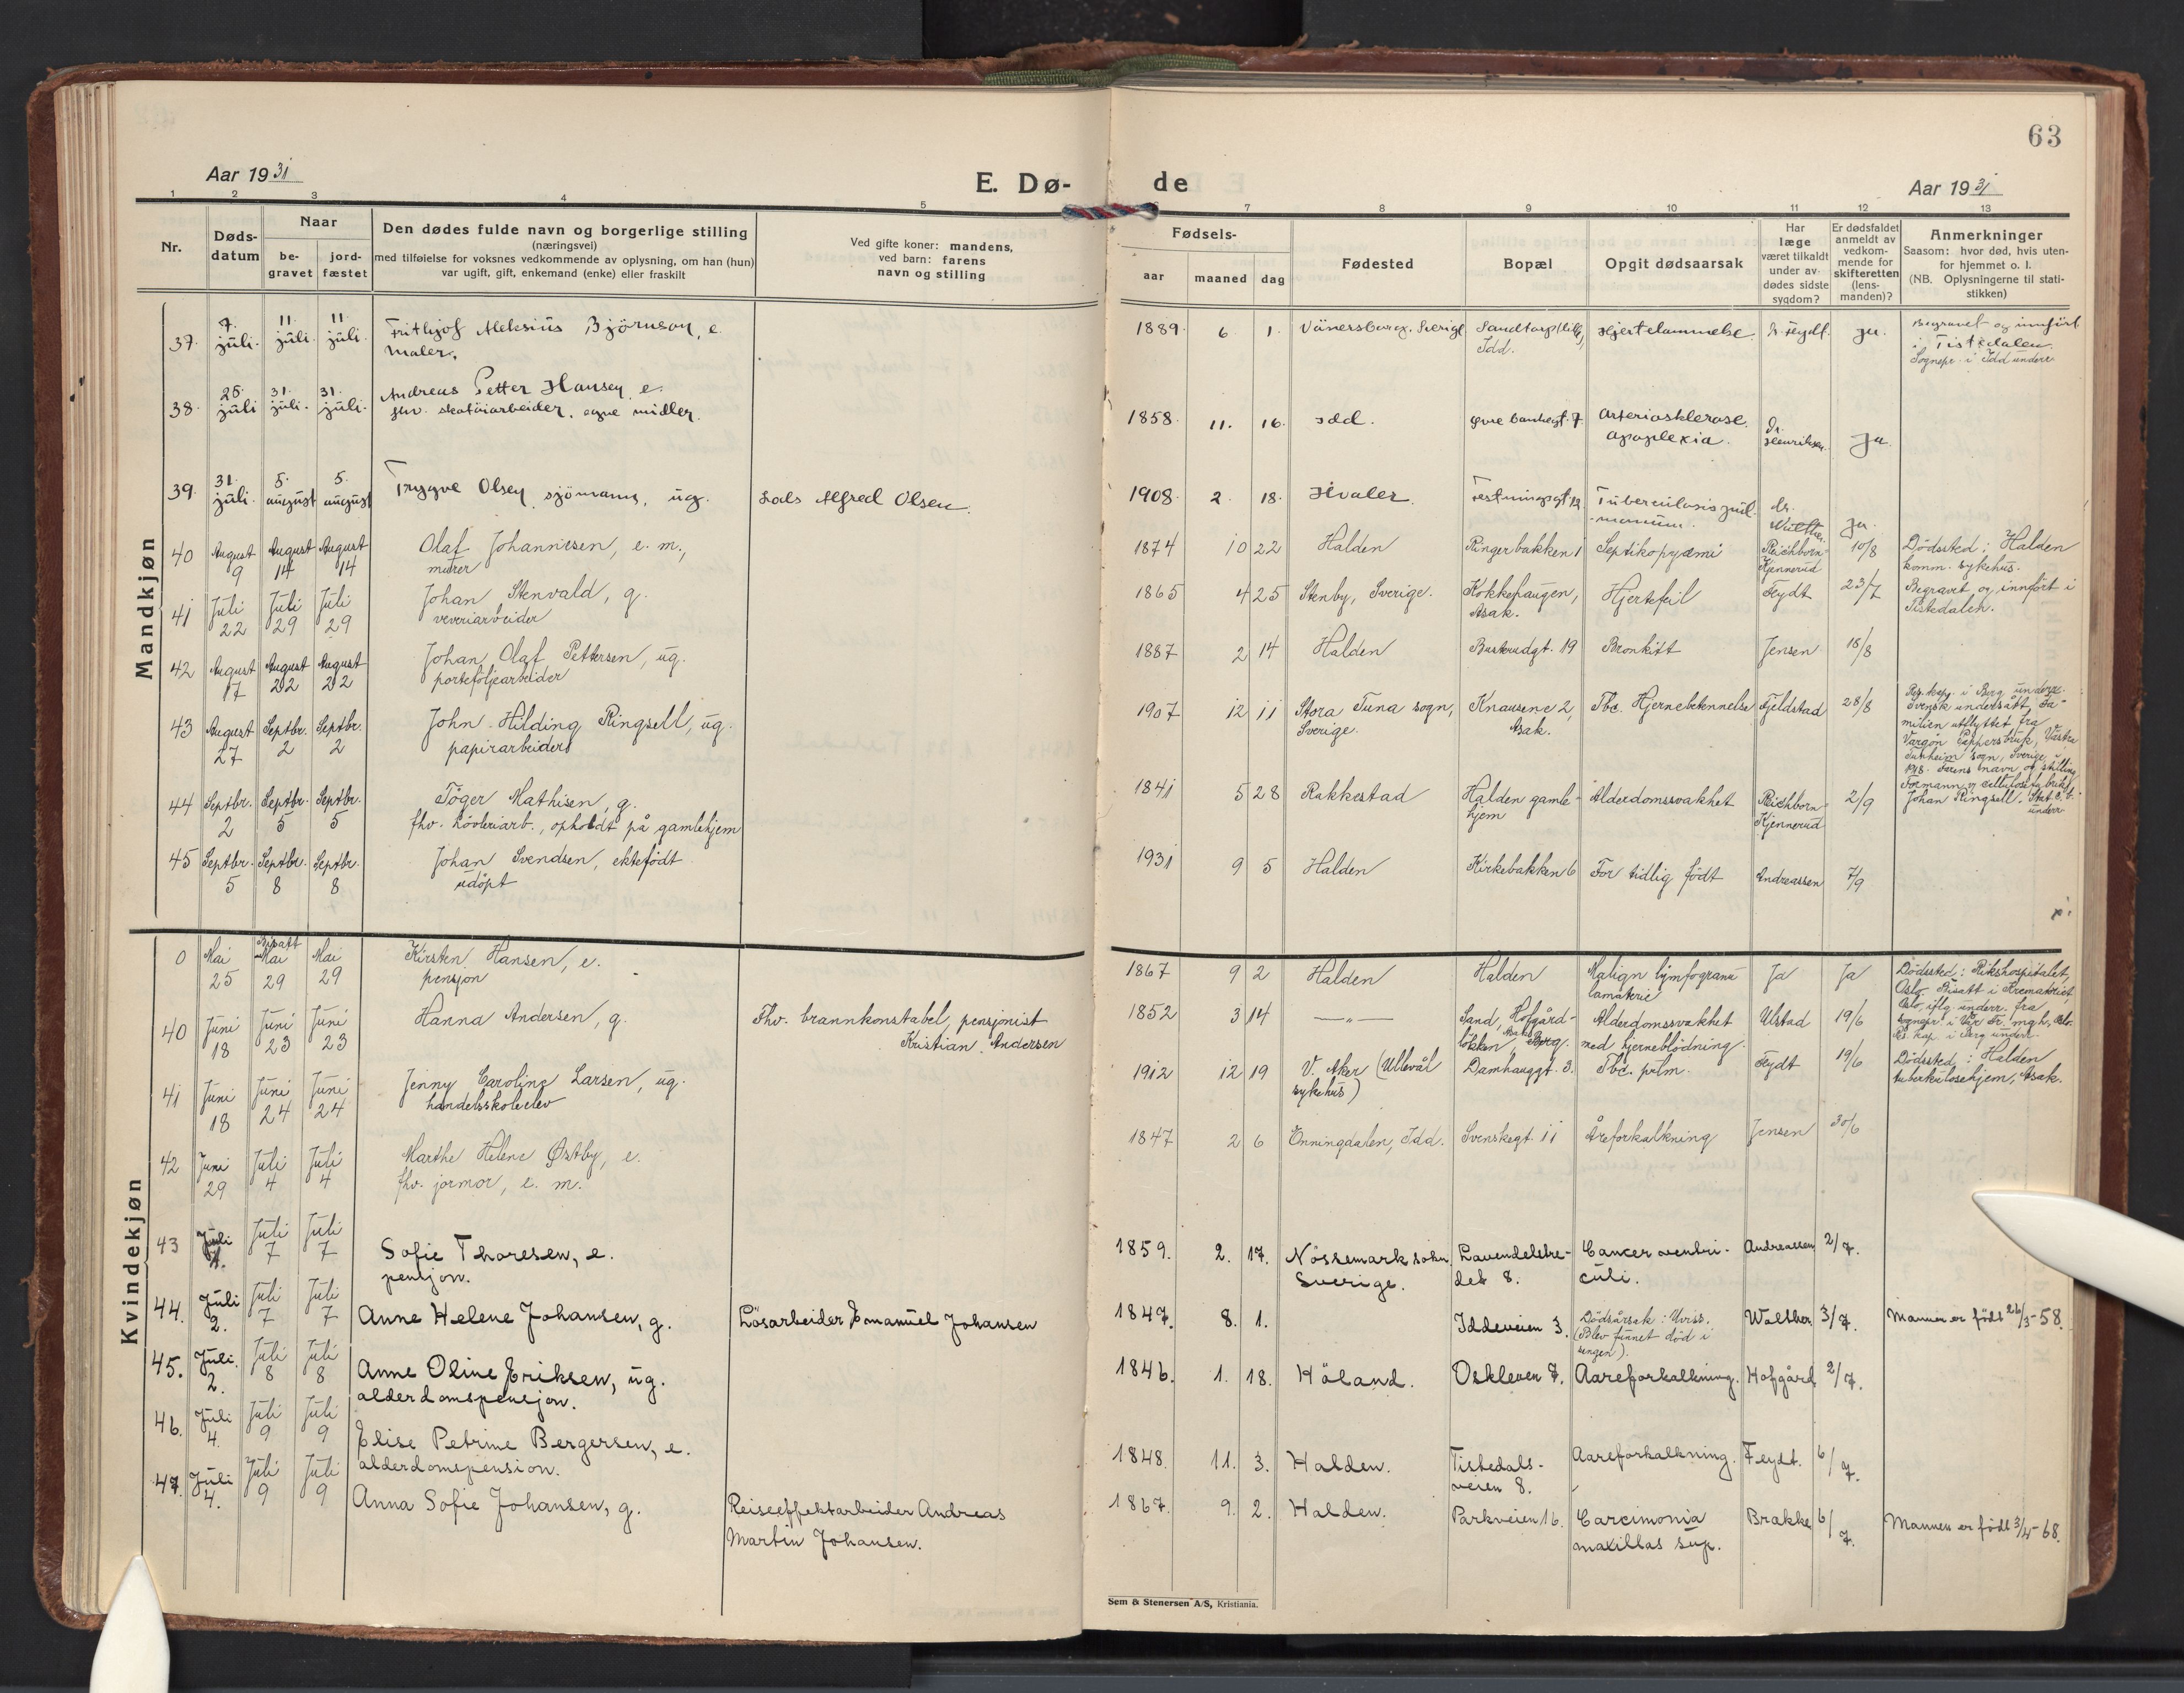 63
Aar 1931
E. Dø-
de
Aar 1931
1 2 3 4 5 7 8 9 10 11 12 13
Nr.
Døds-
datum
Naar
be-
gravet
jord-
fæstet
Den dødes fulde navn og borgerlige stilling
(næringsvei)
med tilføielse for voksnes vedkommende av oplysning, om han (hun)
var ugift, gift, enkemand (enke) eller fraskilt
Ved gifte koner: mandens,
ved barn: farens
navn og stilling
Fødsels-
aar maaned dag
Fødested
Bopæl
Opgit dødsaarsak
Har
læge
været tilkaldt
under av-
dødes sidste
sygdom?
Er dødsfaldet
anmeldt av
vedkom-
mende for
skifteretten
(lens-
manden)?
Anmerkninger
Saasom: hvor død, hvis uten-
for hjemmet o. l.
(NB. Oplysningerne til stati-
stikken)
Mandkjøn
37. 7. juli. 11. juli. 11. juli. Frithjof Aleksius Björnson, e.
maler.
1889. 6 1. Vänersborg, Sverige Idd. Hjertelammelse. ja.
Begravet og innført
i Tistedalen.
Sognepr. i Idd underr.
38. juli 31. juli. 31. juli. Andreas Petter Hansen, e.
fhv. skotöiarbeider, egne midler.
1858. 11. 16. Idd. 7 Arteriosklerose.
apoplexia. Dr.
Henriksen. Ja.
39. 31. juli. 5. august 5. august Trygve Olsen, sjömann, ug. Lods Alfred Olsen.
1908. 2. 18. Hvaler. Festningsgt. 12 Tuberculosis pul-
monum. dr.
Walther. ja.
40 August 9 August 14 August 14 Olaf Johannesen, e. m.,
murer
1874 10 22 Halden Ringerbakken 1 Septikopyæmi Reichborn-
Kjennerud 10/8 Dödssted: Halden
komm. sykehus.
41 Juli 22 Juli 29 Juli 29 Johan Stenvald, g.
veveriarbeider
1865 4 25 Stenby, Sverige. Kokkehaugen,
Asak. Hjertefeil Feydt 23/7 Begravet og innført i
Tistedalen.
42 August 17 August 22 August 22 Johan Olaf Pettersen, ug.
porteföljearbeider
1887 2 14 Halden Buskrudgt. 19 Bronkitt Jensen 18/8
43 August 27 Septbr. 2 Septbr. 2 John Hilding Ringsell, ug.
papirarbeider
1907 12 11 Stora Tuna sogn,
Sverige. Knausene 2,
Asak. Tbc. Hjernebetennelse Fjeldstad 28/8
Res. kap. i Berg underr.
Svensk undersått. Fa-
milien utflyttet fra
Vargön Pappersbruk, Västra
Tunheim sogn, Sverige, i
1918. Farens navn og stilling
Formann v. cellulosefabrikk
Johan Ringsell.
underr.
44 Septbr. 2 Septbr. 5 Septbr. 5 Töger Mathisen, g.
fhv. hövleriarb., opholdt på gamlehjem
1841 5 28 Rakkestad Halden gamle-
hjem Alderdomssvakhet Reichborn-
Kjennerud 2/9
45 Septbr. 5 Septbr. 8 Septbr. 8 Johan Svendsen, ektefödt
udöpt
1931 9 5 Halden Kirkebakken 6 For tidlig födt Andreassen 7/9
Kvindekjøn
0 Mai 25 Bisatt Mai 29 Mai 29 Kirsten Hansen, e.
pensjon
1867 9 2 Halden Halden Malign lymfogranu
lamaterie Ja Ja Dödssted: Rikshospitalet,
Oslo. Bisatt i Krematoriet
Oslo, iflg. underr. fra
sognepr. i Vår Fr. mgh., Oslo.
Rs. kap. i Berg underr.
40 Juni 18 Juni 23 Juni 23 Hanna Andersen, g. Fhv. brannkonstabel, pensjonist
Kristian Andersen
1852 3 14 — " — Sand, Hofgård-
lökken, Asak Berg. Alderdomssvakhet
med hjerneblödning. Ulstad 19/6
41 Juni 18 Juni 24 Juni 24 Jenny Caroline Larsen, ug.
handelsskoleelev
1912 12 19 V. Aker (Ullevål
sykehus) Damhauggt. 3. Tbc. pulm. Feydt 19/6 Dödssted: Halden
tuberkulosehjem, Asak.
42 Juni 29 Juli 4 Juli 4 Marthe Helene Østby, e.
fhv. jormor, e. m.
1847 2 6 Enningdalen, Idd. Svenskegt. 11 Åreforkalkning Jensen 30/6
43 Juli 1. Juli 7 Juli 7 Sofie Thoresen, e.
pensjon.
1859. 2. 17. Nössemark sokn,
Sverige. Lavendelstre-
det 8. Cancer ventri-
culi. Andreassen 2/7.
44. Juli 2. Juli 7 Juli 7 Anne Helene Johansen, g. Lösarbeider Emanuel Johansen
1847. 8. 1. Iddeveien 3. Dödsårsak: Uviss.
(Blev funnet död i
sengen). Walther 3/7. Mannen er födt 26/3-58.
45. Juli 2. Juli 8 Juli 8 Anne Oline Eriksen, ug.
alderdomspensjon.
1846. 1. 18. Höland. Oskleven 7. Aareforkalkning. Hofgård 2/7.
46. Juli 4. Juli 9 Juli 9 Elise Petrine Bergersen, e.
alderdomspension.
1848. 11. 3. Halden. Tistedals-
veien 8. Aareforkalkning. Feydt. 6/7.
47. Juli 4. Juli 9 Juli 9 Anna Sofie Johansen, g. Reiseeffektarbeider Andreas
Martin Johansen.
1867. 9. 2. Halden. Parkveien 16. Carcimonia
maxillas sup. Brække 6/7. Mannen er födt 3/4-68.
Sem & Stenersen A/S, Kristiania.